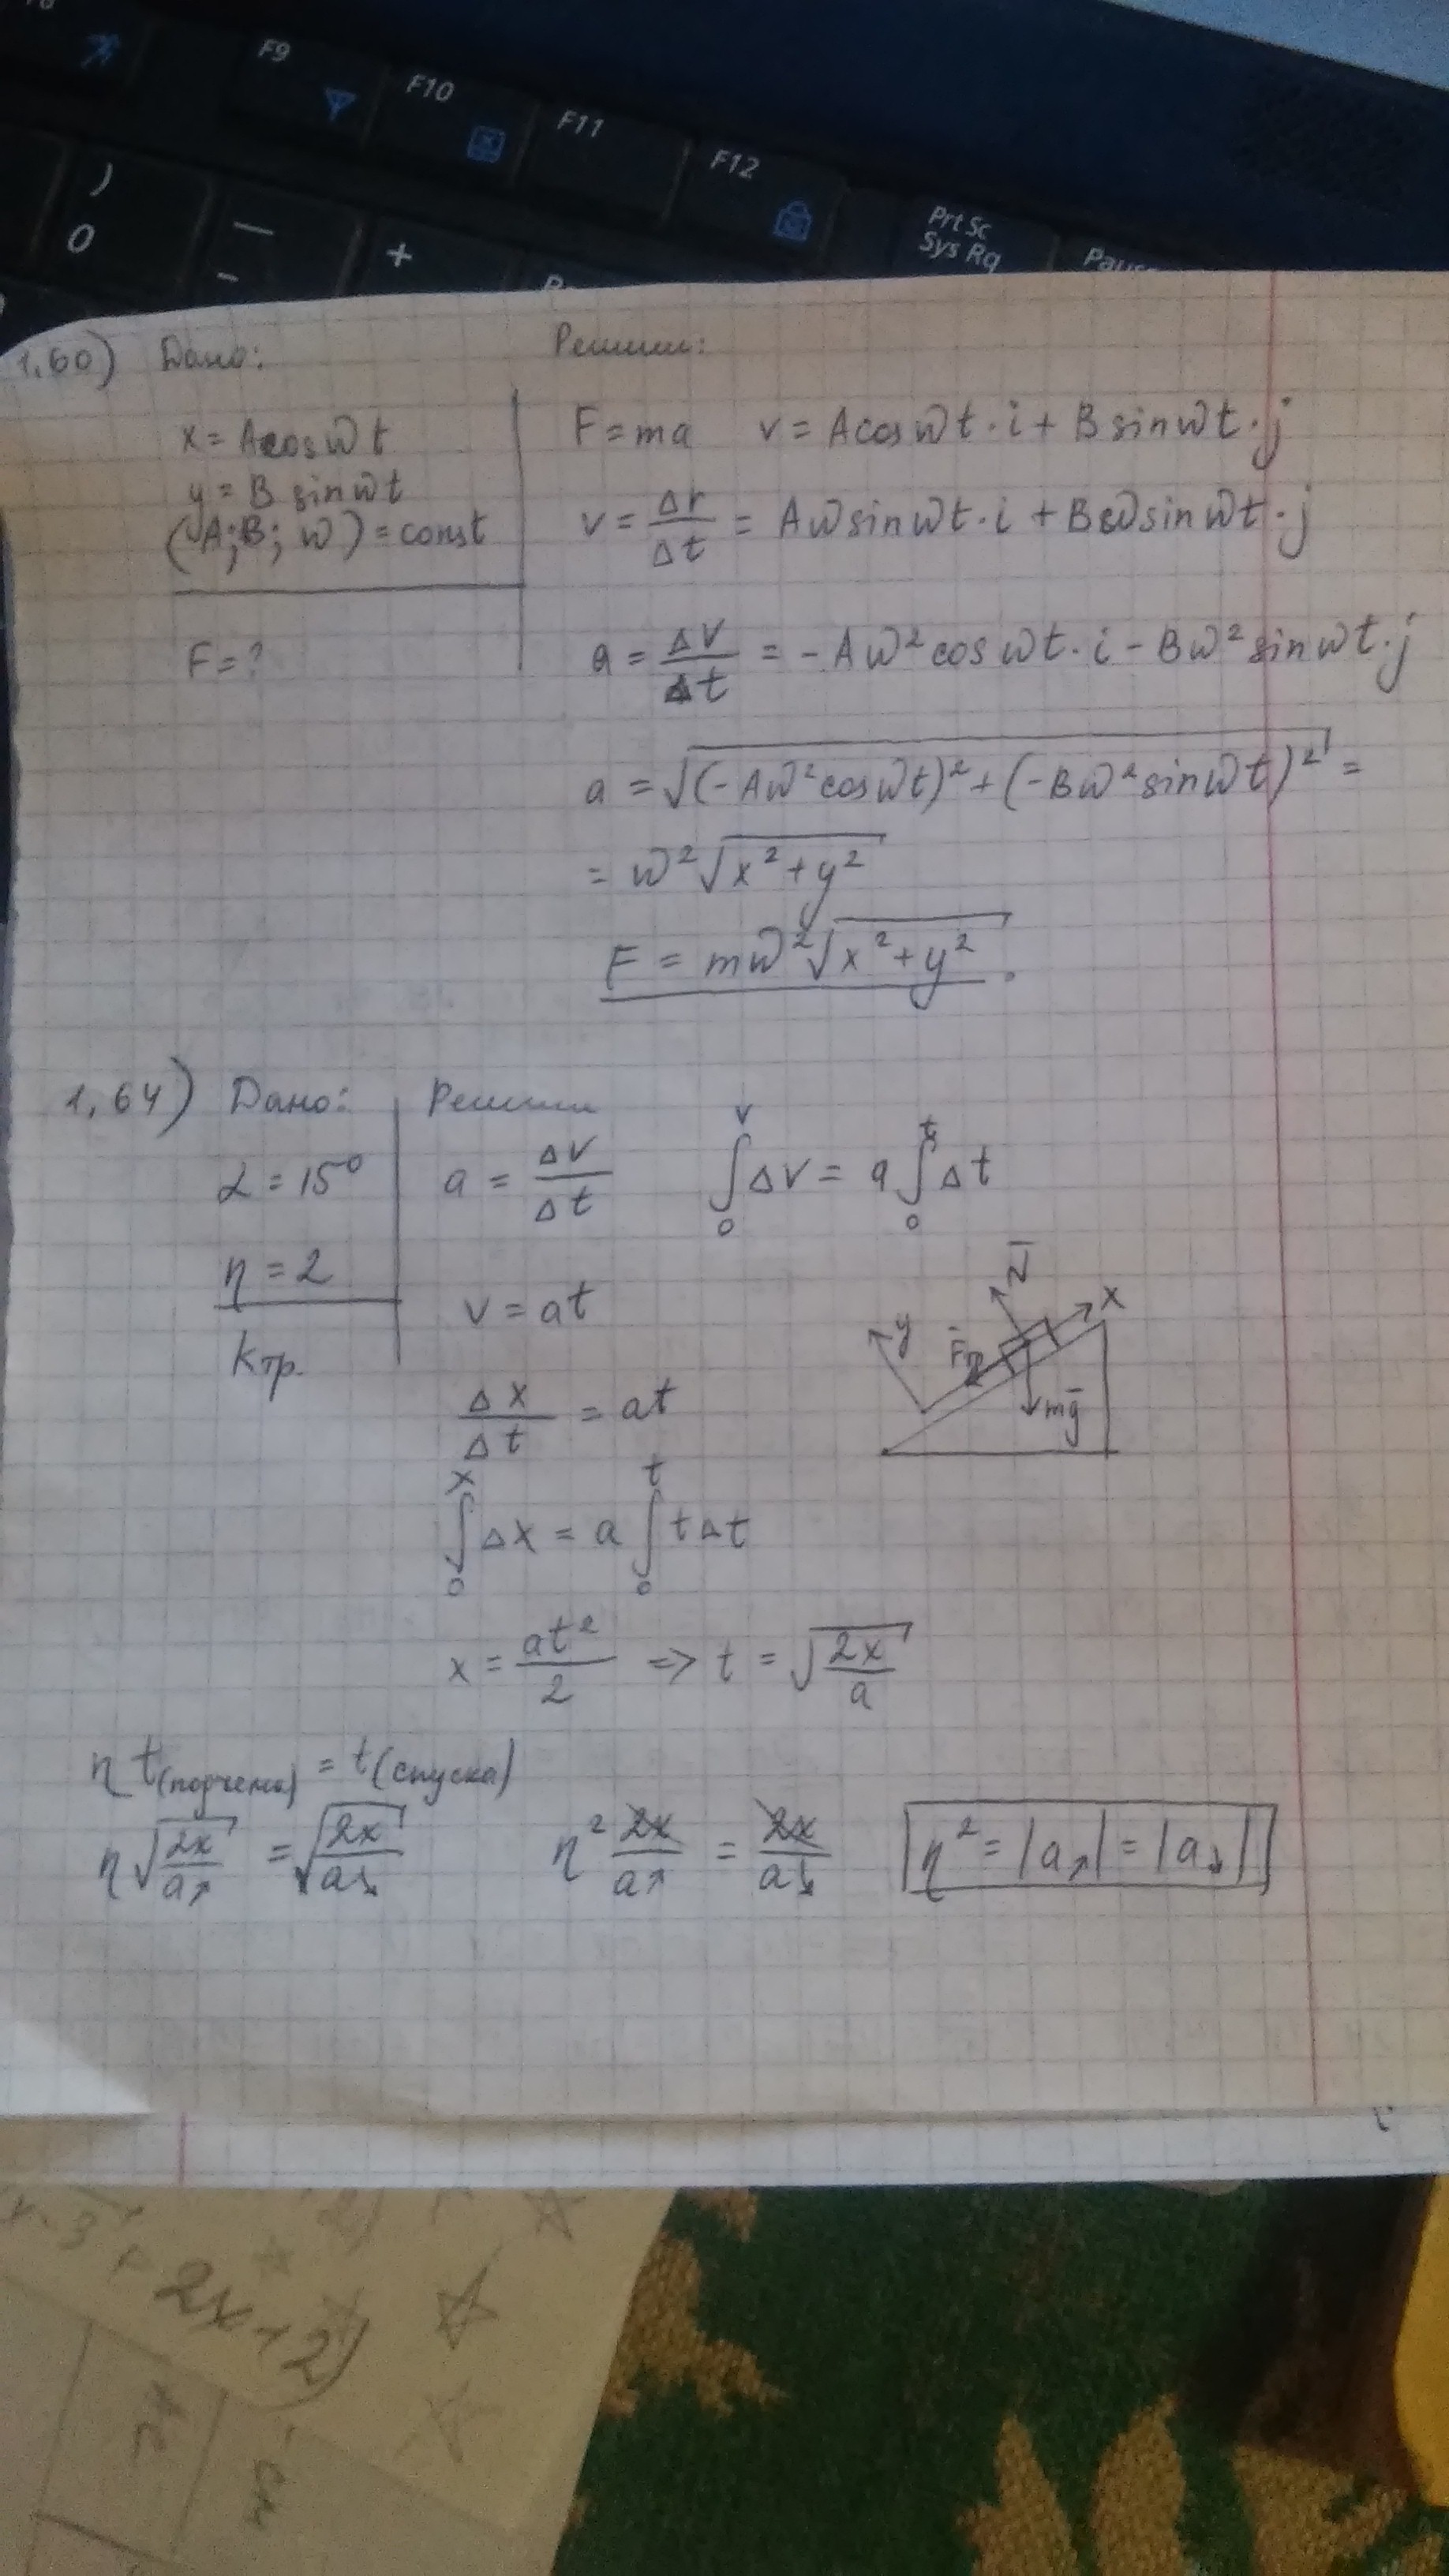 F9
F10
F11
F12
)
0
—
-
+
Prt Sc
Sys Rq
1.60) Дано:
Решили:
x = Acosωt
y = B sinωt
(A; B; ω) = const
F = ?
F = ma v = Acosωt·i + Bsinωt·j
v = Δr/Δt = Aωsinωt·i + Bωsinωt·j
a = ΔV/Δt = -Aω²cosωt·i - Bω²sinωt·j
a = √((-Aω²cosωt)² + (-Bω²sinωt)²) =
= ω²√(x² + y²)
F = mω²√(x² + y²).
1,64) Дано: Решили
α = 15°
η = 2
Kтр.
a = ΔV/Δt ∫₀ᵛ ΔV = a ∫₀ᵗ Δt
v = at
Δx/Δt = at
∫₀ˣ Δx = a ∫₀ᵗ tΔt
N̄
x
y
mḡ
x = at²/2 => t = √(2x/a)
η t(подъема) = t(спуска)
η√(2x/a↗) = √(2x/a↘) η² 2x/a↗ = 2x/a↘ η² = |a↗| = |a↘|
+ 2x + 2)